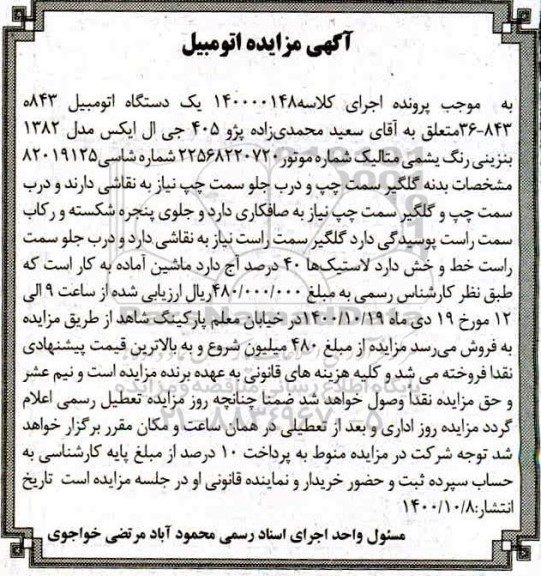 آگهی مزایده اتومبیل
به موجب پرونده اجرای کلاسه۱۴۰۰۰۰۱۴۸ یک دستگاه اتومبیل ۸۴۳ه
۸۴۳-۳۶متعلق به آقای سعید محمدی‌زاده پژو ۴۰۵ جی ال ایکس مدل ۱۳۸۲
بنزینی رنگ یشمی متالیک شماره موتور۲۲۵۶۸۲۲۰۷۲۰ شماره شاسی۸۲۰۱۹۱۲۵
مشخصات بدنه گلگیر سمت چپ و درب جلو سمت چپ نیاز به نقاشی دارند و درب
سمت چپ و گلگیر سمت چپ نیاز به صافکاری دارد و جلوی پنجره شکسته و رکاب
سمت راست پوسیدگی دارد گلگیر سمت راست نیاز به نقاشی دارد و درب جلو سمت
راست خط و خش دارد لاستیک‌ها ۴۰ درصد آج دارد ماشین آماده به کار است که
طبق نظر کارشناس رسمی به مبلغ ۴۸۰/۰۰۰/۰۰۰ریال ارزیابی شده از ساعت ۹ الی
۱۲ مورخ ۱۹ دی ماه ۱۴۰۰/۱۰/۱۹در خیابان معلم پارکینگ شاهد از طریق مزایده
به فروش می‌رسد مزایده از مبلغ ۴۸۰ میلیون شروع و به بالاترین قیمت پیشنهادی
نقدا فروخته می شد و کلیه هزینه های قانونی به عهده برنده مزایده است و نیم عشر
و حق مزایده نقداً وصول خواهد شد ضمنا چنانچه روز مزایده تعطیل رسمی اعلام
گردد مزایده روز اداری و بعد از تعطیلی در همان ساعت و مکان مقرر برگزار خواهد
شد توجه شرکت در مزایده منوط به پرداخت ۱۰ درصد از مبلغ پایه کارشناسی به
حساب سپرده ثبت و حضور خریدار و نماینده قانونی او در جلسه مزایده است تاریخ
انتشار:۱۴۰۰/۱۰/۸
مسئول واحد اجرای اسناد رسمی محمود آباد مرتضی خواجوی